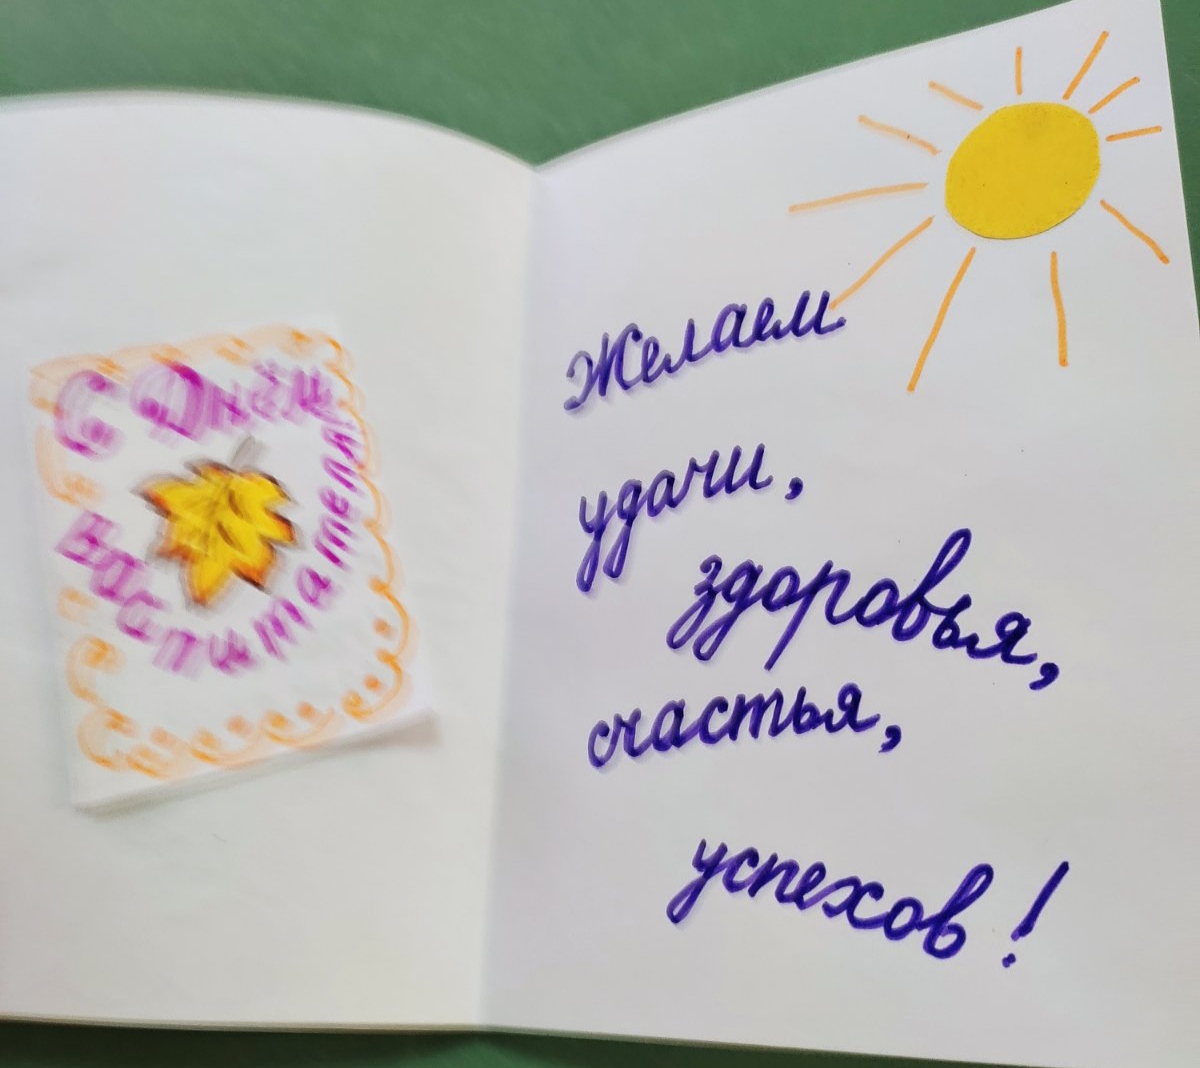 С Днём
васпитателя
Желаем
удачи,
здоровья,
счастья,
успехов!